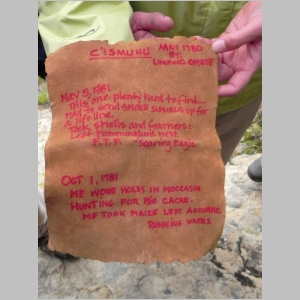 C'ISMUNU MAY 1780
BY:
LIMPING COYOTE
MAY 5, 1781
This one plenty hard to find...
Had to send smoke signals up for
a life line.
Took shells and feathers.
Leat hummingbird nest.
P.T.F. Soaring Eagle
OCT 1, 1781
ME WORE HOLES IN MOCCASIN
HUNTING FOR BIG CACHE.
ME TOOK MAIZE LEFT ACCORNS.
RUNNING WATER